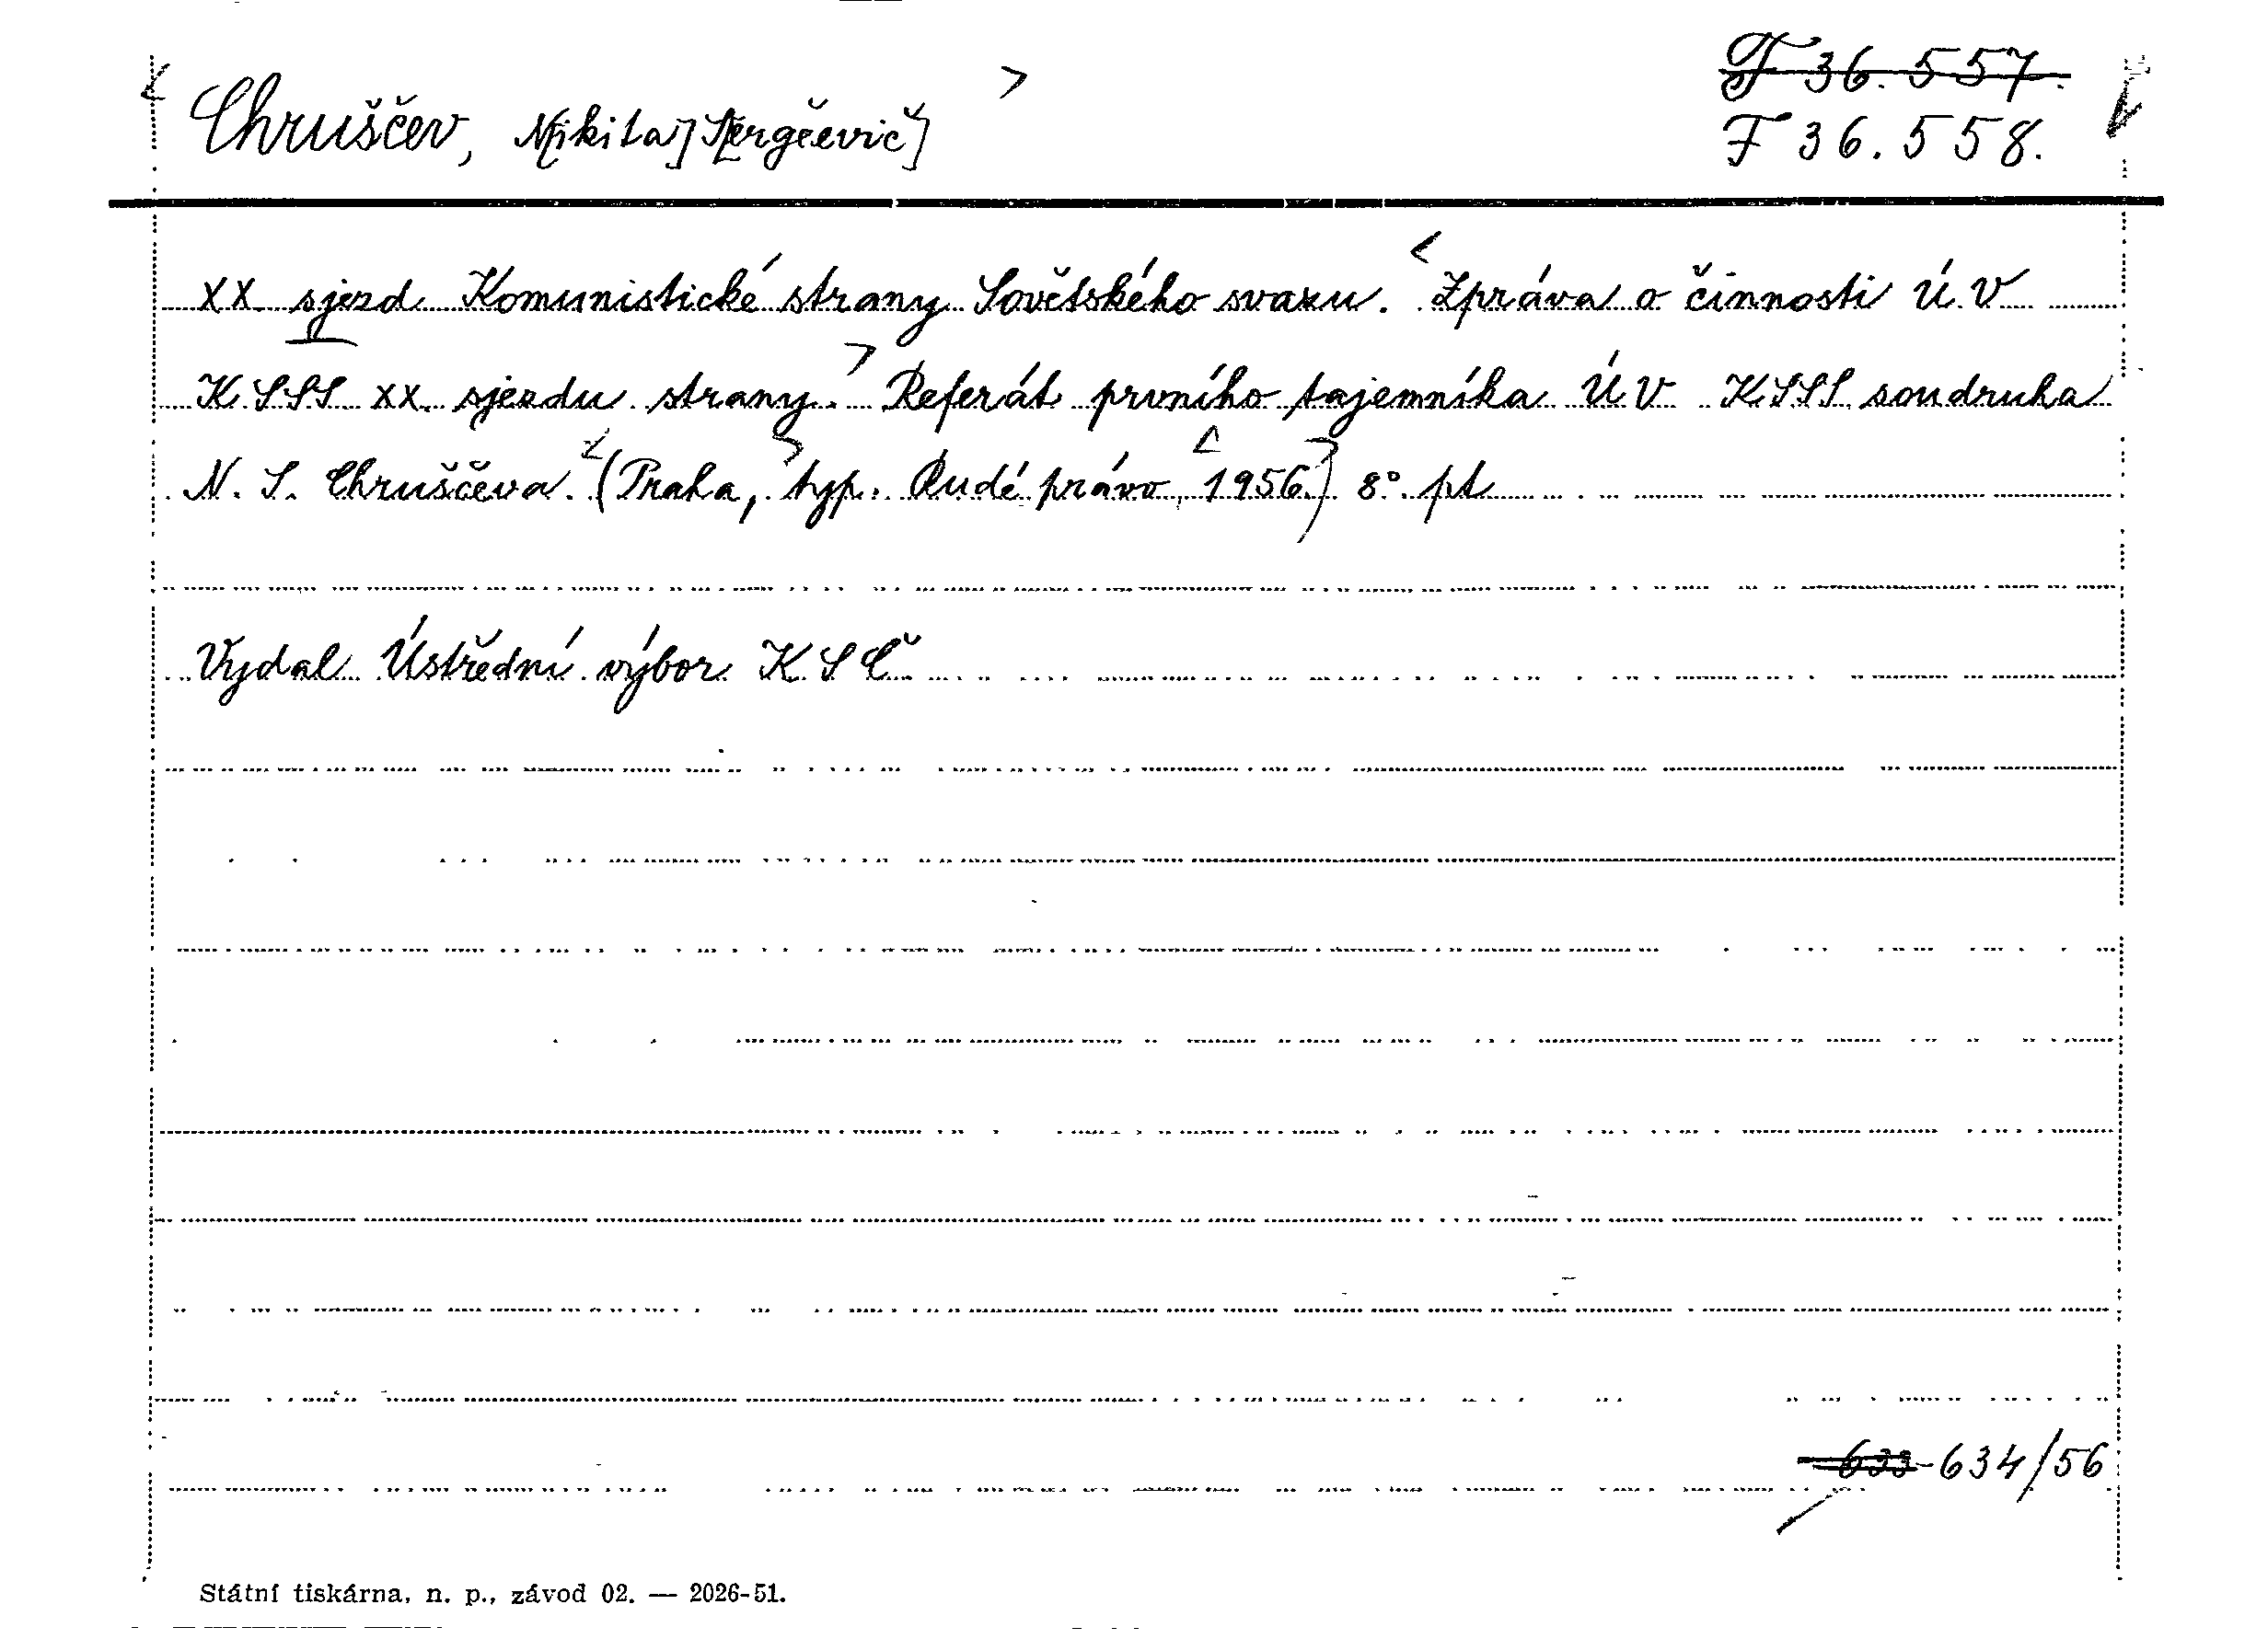 < Chruščev, N[ikita] S[ergěevič] >
F 36.557.
F 36.558.
XX. sjezd Komunistické strany Sovětského svazu. <Zpráva o činnosti ÚV
KSSS XX. sjezdu strany.> Referát prvního tajemníka ÚV KSSS soudruha
N. S. Chruščeva. <(Praha,> typ. Rudé právo, <1956.)> 8°. pt
Vydal Ústřední výbor KSČ
633-634/56
Státní tiskárna, n. p., závod 02. — 2026-51.